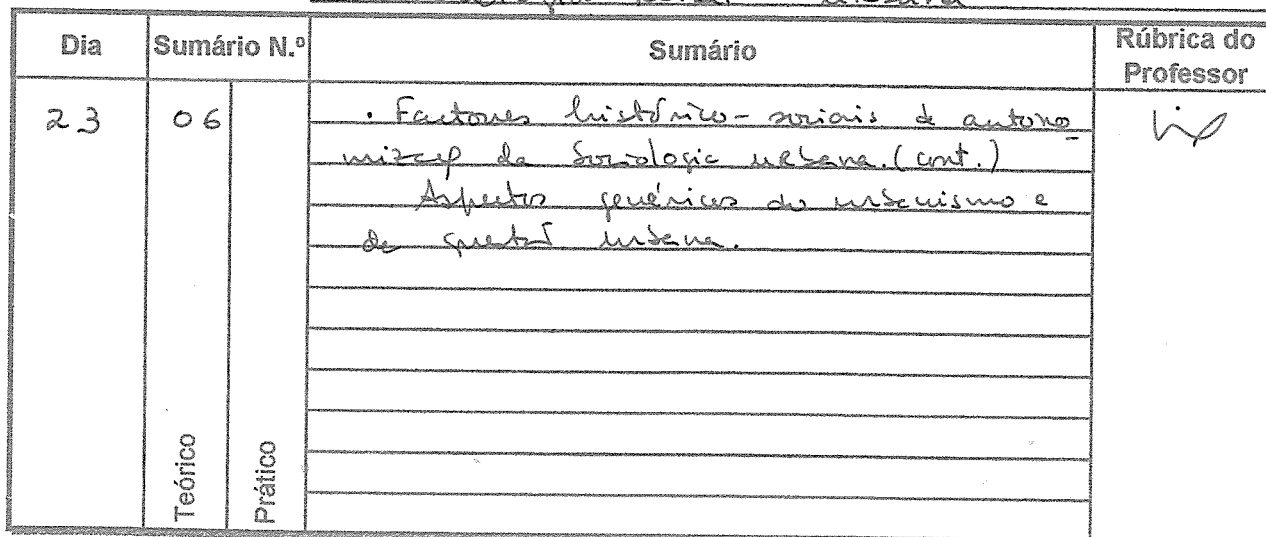 Dia Sumário N.º Sumário Rúbrica do Professor
23 06 . Factores histórico-sociais de autono
mização da Sociologia urbana. (cont.)
Aspectos genéricos do urbanismo e
da questão urbana.
Teórico Prático